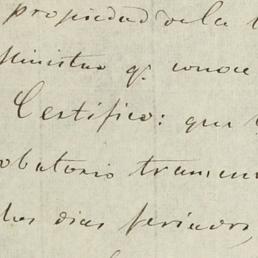 propiedad de la
Ministro q.e conoce
Certifico: que
obatorio transcur
los dias feriados,